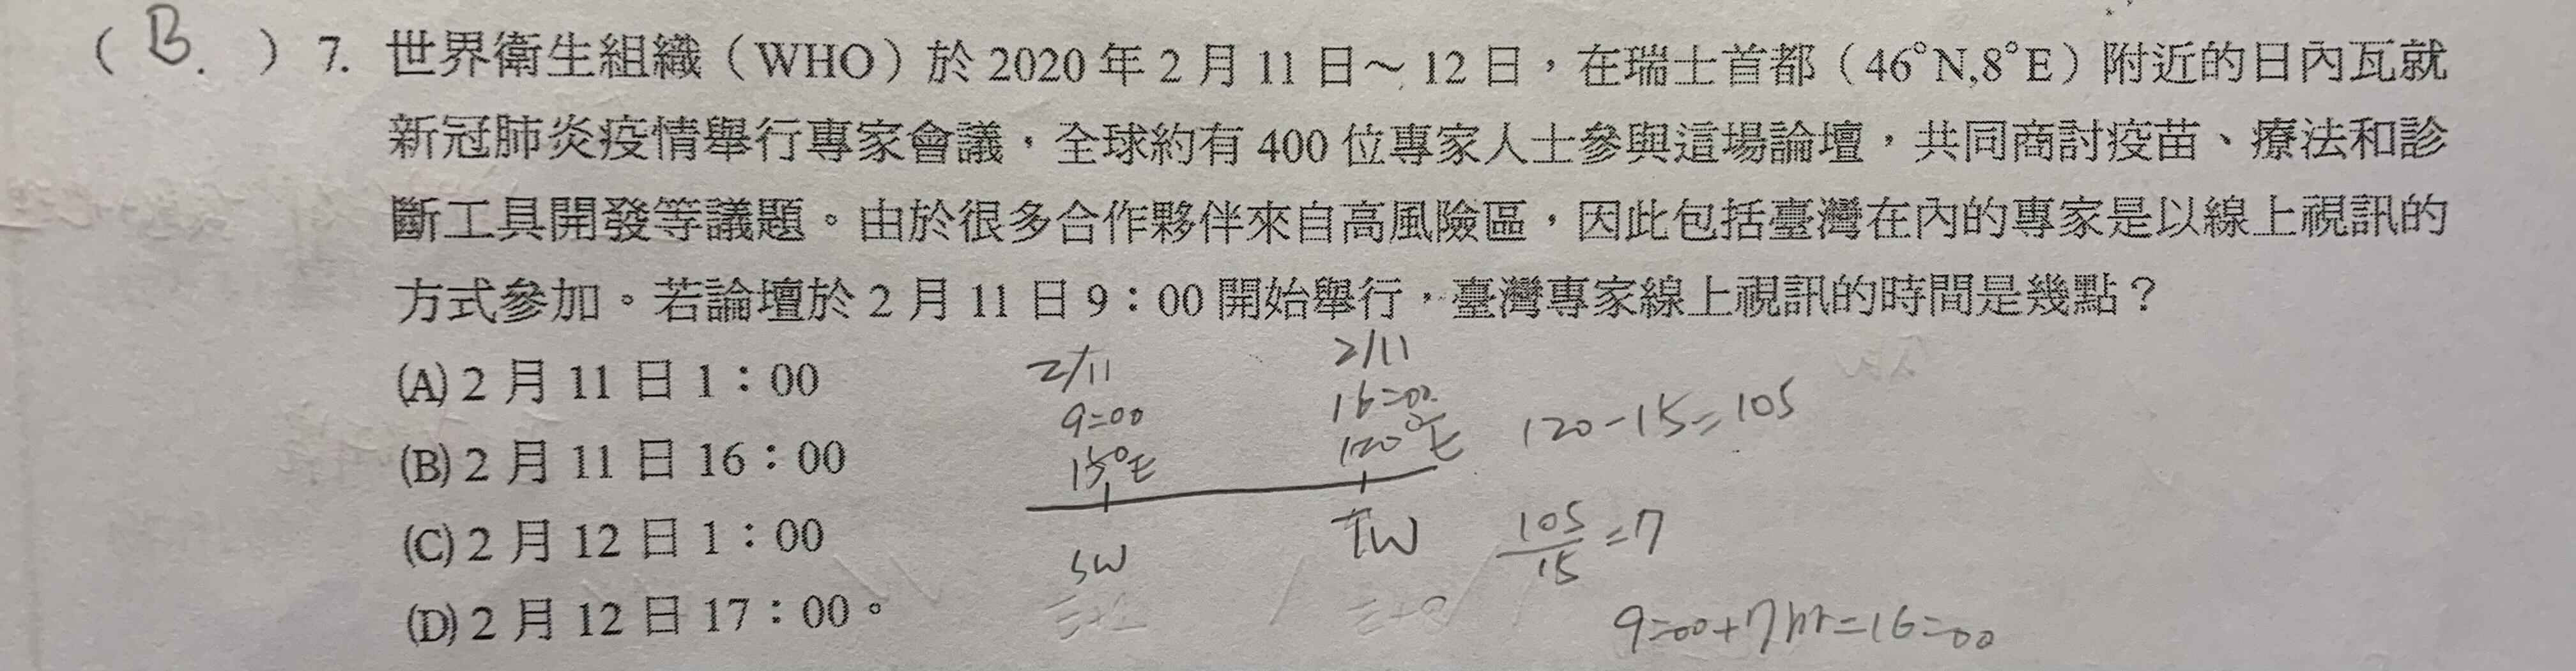 ( B. ) 7. 世界衛生組織（WHO）於 2020 年 2 月 11 日～12 日，在瑞士首都（46°N,8°E）附近的日內瓦就
新冠肺炎疫情舉行專家會議，全球約有 400 位專家人士參與這場論壇，共同商討疫苗、療法和診
斷工具開發等議題。由於很多合作夥伴來自高風險區，因此包括臺灣在內的專家是以線上視訊的
方式參加。若論壇於 2 月 11 日 9：00 開始舉行，臺灣專家線上視訊的時間是幾點？
(A) 2 月 11 日 1：00
(B) 2 月 11 日 16：00
(C) 2 月 12 日 1：00
(D) 2 月 12 日 17：00。
2/11
9=00
15°E
SW
2/11
16=00
120°E
TW
120-15=105
105/15=7
9=00+7hr=16=00